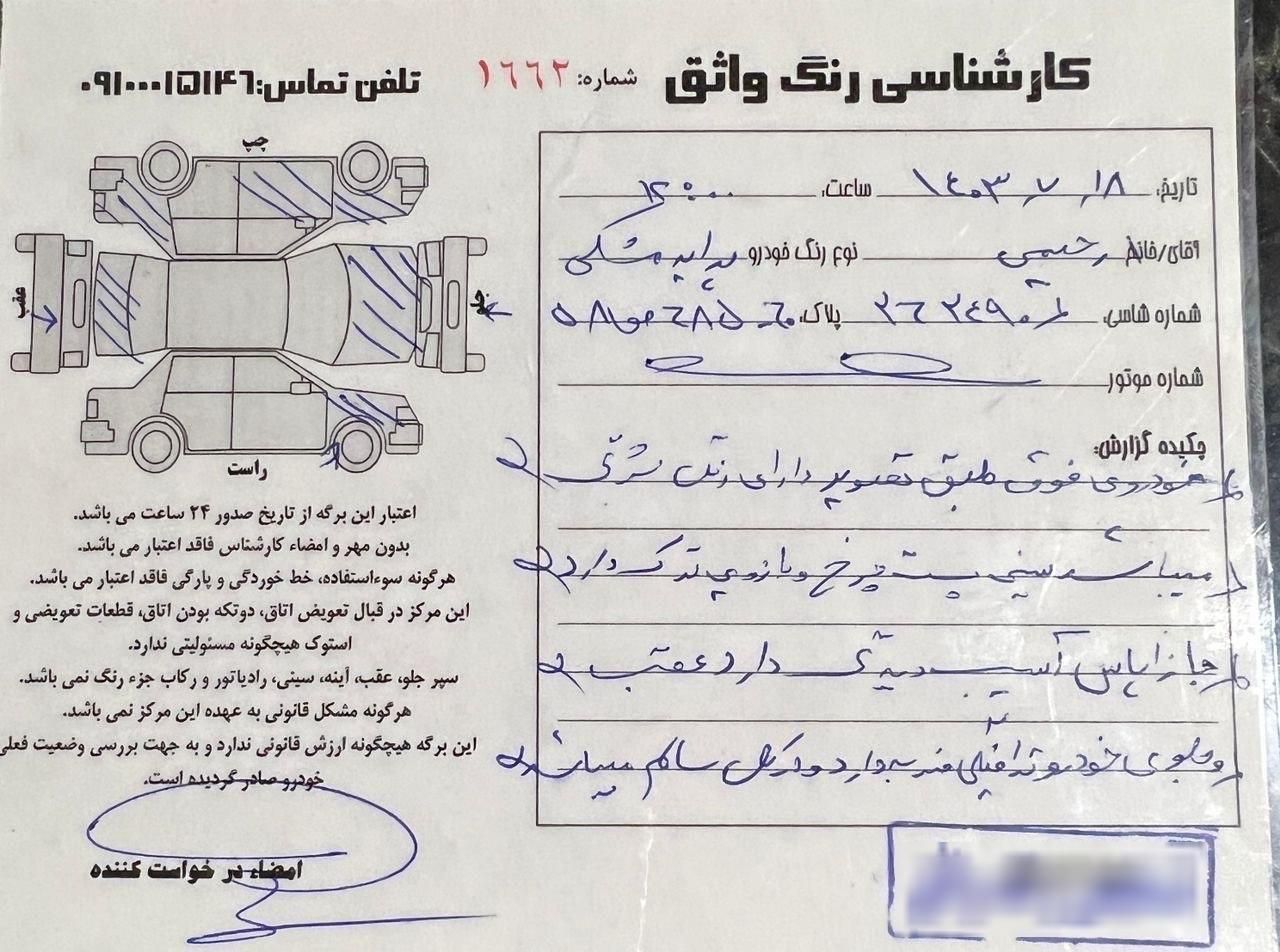 کارشناسی رنگ واثق
شماره: ۱٦٦۲
تلفن تماس: ۰۹۱۰۰۰۱۵۱۴۶
تاریخ: ۱۴۰۳/۷/۱۸ ساعت: ۱۲:۰۰
آقای/خانم رحیمی نوع رنگ خودرو پراید مشکی
شماره شاسی: پلاک:
شماره موتور
چکیده گزارش:
خودروی فوق طبق تصویر دارای رنگ
میباشد سینی پشت چرخ و بازویی ترک دارد
جا زاپاس آسیب دارد عقب
و جلوی خودرو ترافیکی ضربه دارد و درکل سالم میباشد
چپ
عقب
جلو
راست
اعتبار این برگه از تاریخ صدور ۲۴ ساعت می باشد.
بدون مهر و امضاء کارشناس فاقد اعتبار می باشد.
هرگونه سوءاستفاده، خط خوردگی و پارگی فاقد اعتبار می باشد.
این مرکز در قبال تعویض اتاق، دوتکه بودن اتاق، قطعات تعویضی و
استوک هیچگونه مسئولیتی ندارد.
سپر جلو، عقب، آینه، سینی، رادیاتور و رکاب جزء رنگ نمی باشد.
هرگونه مشکل قانونی به عهده این مرکز نمی باشد.
این برگه هیچگونه ارزش قانونی ندارد و به جهت بررسی وضعیت فعلی
خودرو صادر گردیده است.
امضاء در خواست کننده